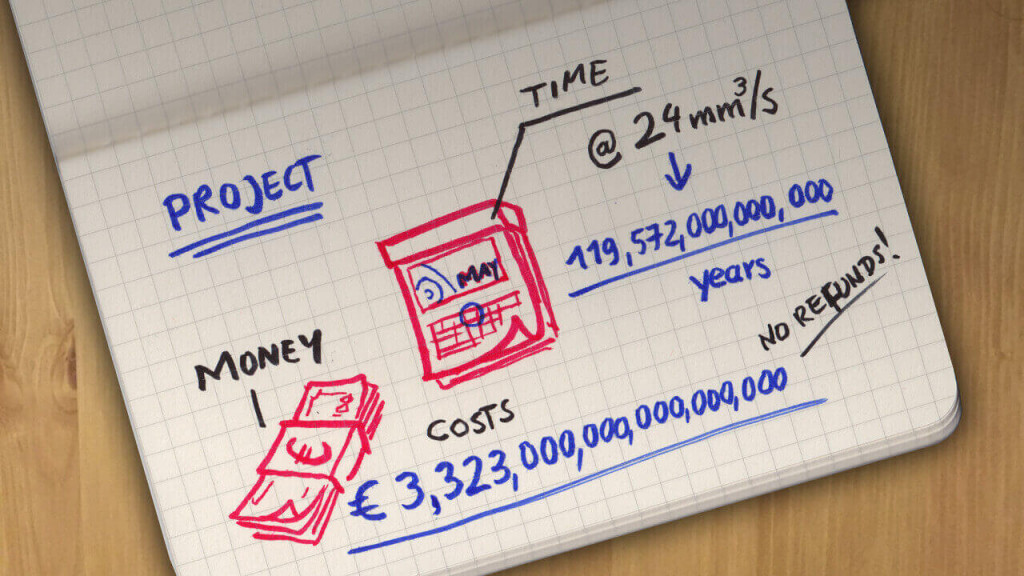 TIME
@ 24 mm³/s
PROJECT
119,572,000,000,000
years
MAY
NO REFUNDS!
MONEY
COSTS
€ 3,323,000,000,000,000,000
€